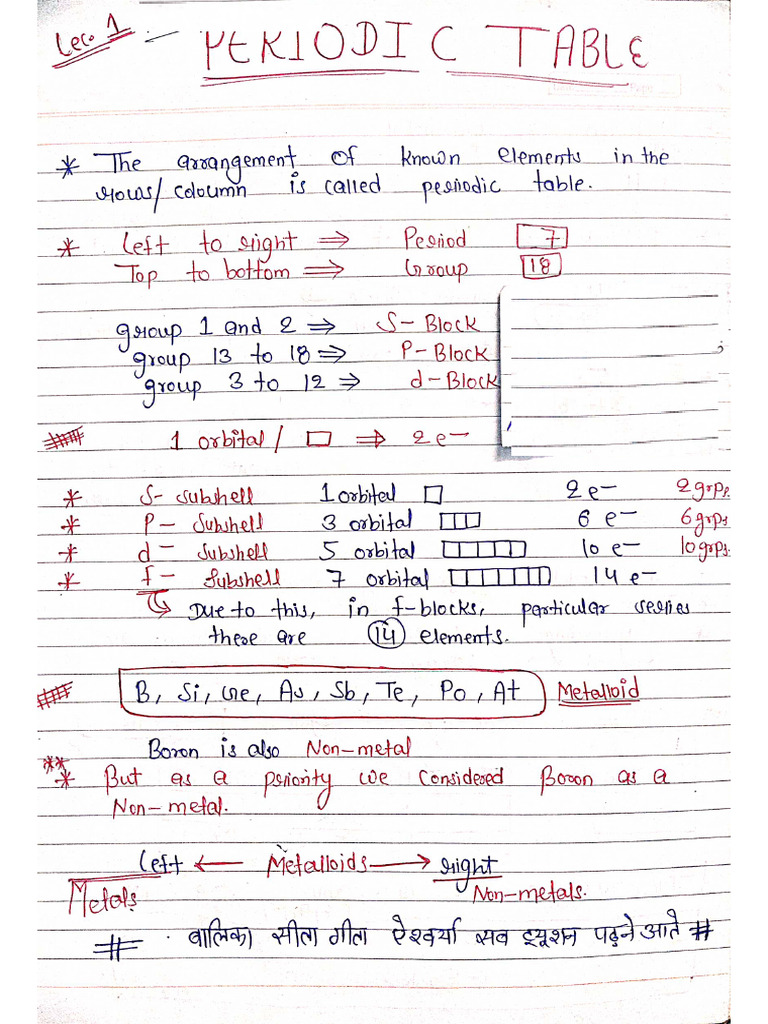 Lec. 1 - PERIODIC TABLE
* The arrangement of known elements in the
rows/ coloumn is called periodic table.
* Left to right ⇒ Period 7
Top to bottom ⇒ Group 18
group 1 and 2 ⇒ S-Block
group 13 to 18 ⇒ P-Block
group 3 to 12 ⇒ d-Block
1 orbital/ □ ⇒ 2e-
* S- subshell 1 orbital 2e- 2 grps.
* P- subshell 3 orbital 6 e- 6 grps
* d- subshell 5 orbital 10 e- 10 grps.
* f- subshell 7 orbital 14 e-
Due to this, in f-blocks, particular series
there are 14 elements.
B, Si, Ge, As, Sb, Te, Po, At Metalloid
Boron is also Non-metal
** * But as a periority we considered Boron as a
Non-metal.
Left ← Metalloids → right
Metals Non-metals.
# बालिका सीता गीता ऐश्वर्या सब ट्यूशन पढ़ने आते #